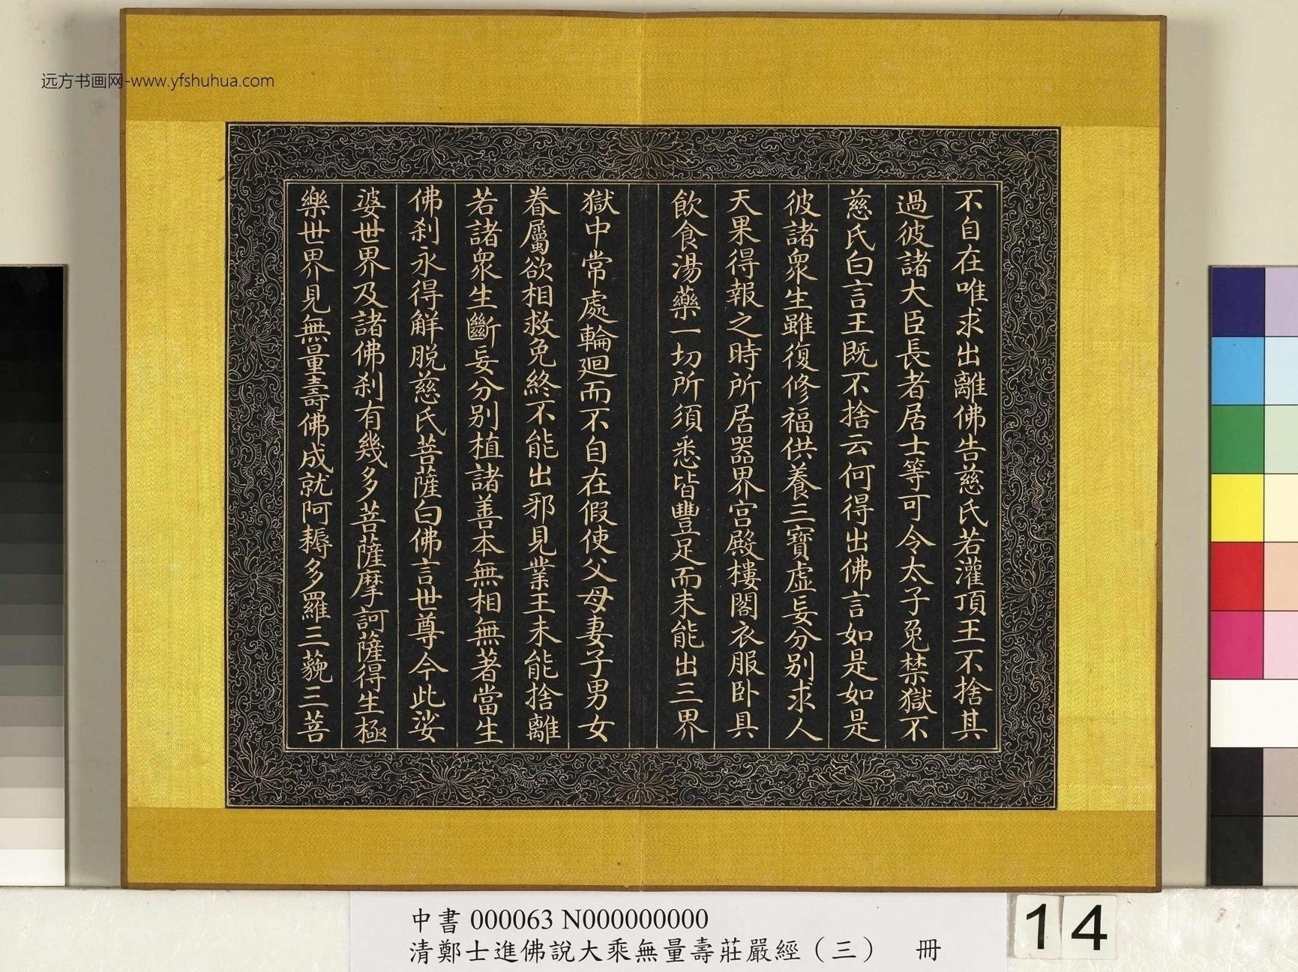 远方书画网-www.yfshuhua.com
不自在唯求出離佛告慈氏若灌頂王不捨其
過彼諸大臣長者居士等可令太子免禁獄不
慈氏白言王既不捨云何得出佛言如是如是
彼諸眾生雖復修福供養三寶虛妄分別求人
天果得報之時所居器界宮殿樓閣衣服卧具
飲食湯藥一切所須悉皆豐足而未能出三界
獄中常處輪迴而不自在假使父母妻子男女
眷屬欲相救免終不能出邪見業王未能捨離
若諸眾生斷妄分別植諸善本無相無著當生
佛刹永得解脫慈氏菩薩白佛言世尊今此娑
婆世界及諸佛刹有幾多菩薩摩訶薩得生極
樂世界見無量壽佛成就阿耨多羅三藐三菩
中書 000063 N000000000
清鄭士進佛說大乘無量壽莊嚴經（三） 冊
14